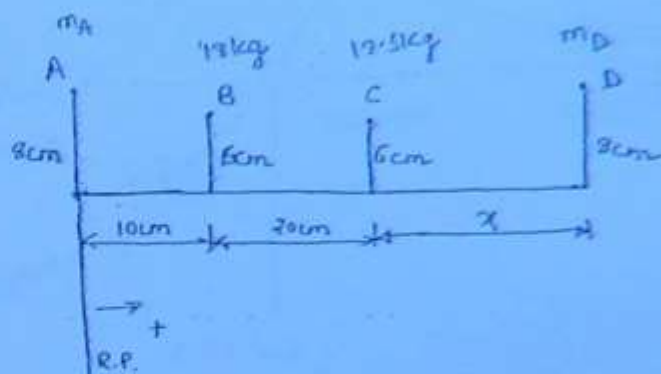 mA 18kg 12.5kg mD
A B C D
8cm 6cm 6cm 8cm
10cm 20cm x
+
R.P.